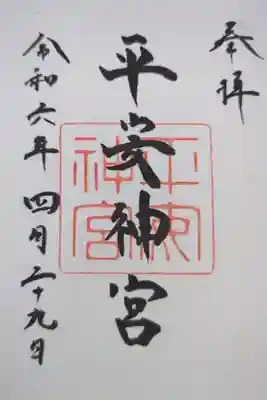 奉拝
平安神宮
令和六年四月二十九日